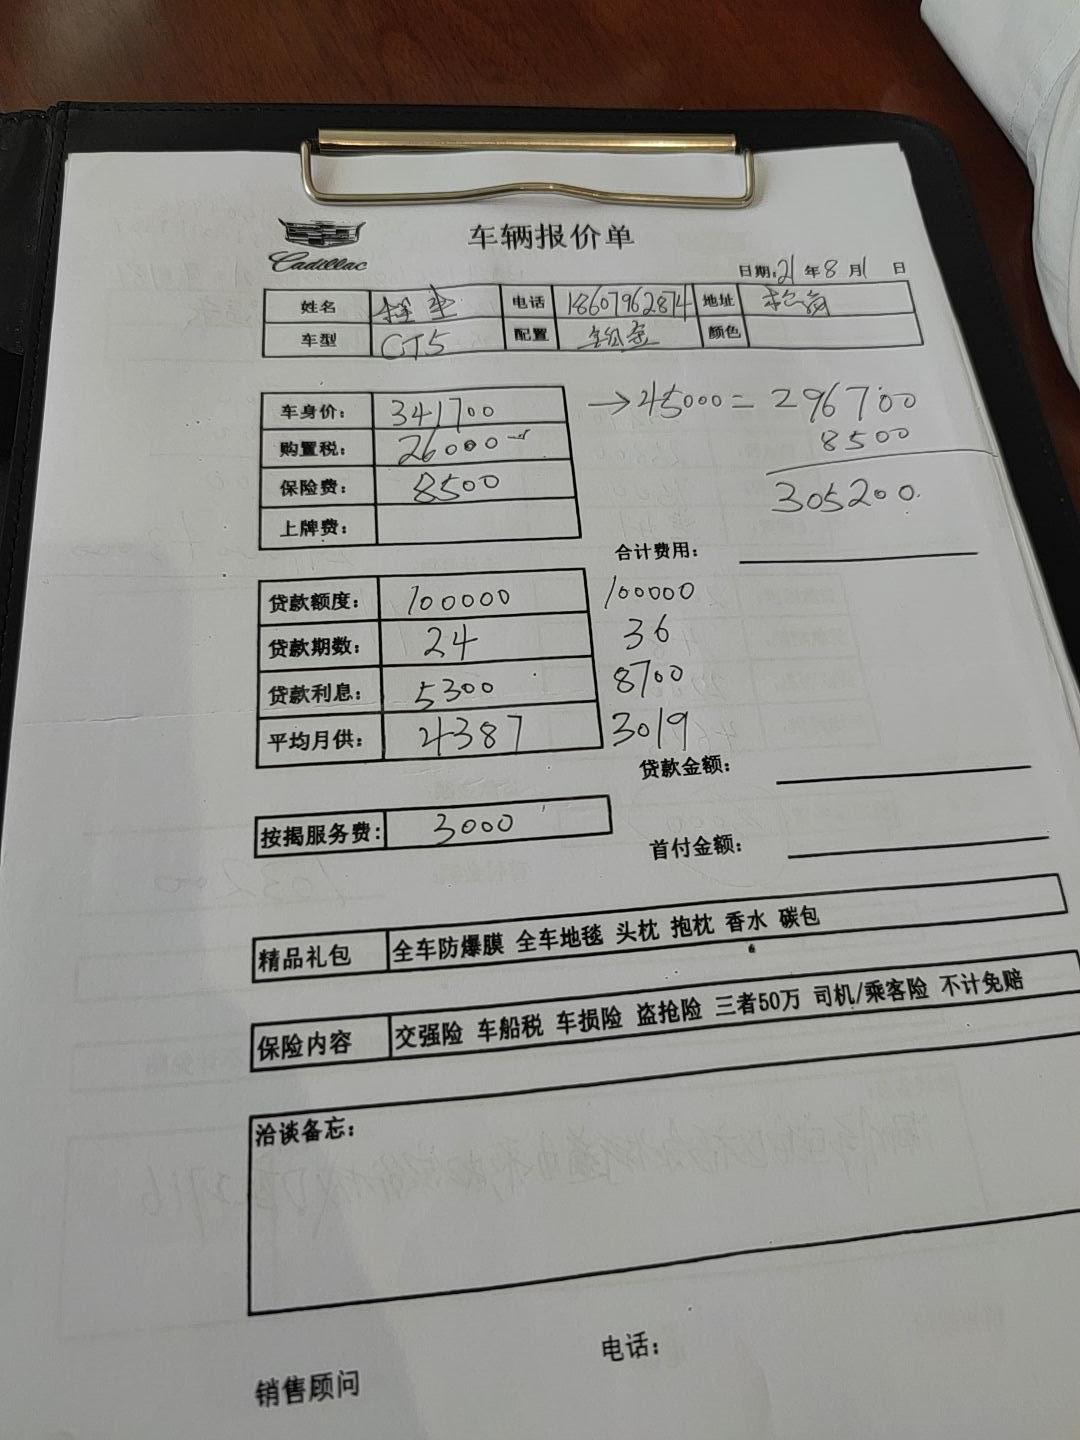 车辆报价单
Cadillac
日期:21年8月1日
姓名 电话 18607962874 地址
车型 CT5 配置 铂金 颜色
车身价: 341700 →45000= 296700
购置税: 26000 8500
保险费: 8500 305200
上牌费:
合计费用:
贷款额度: 100000 100000
贷款期数: 24 36
贷款利息: 5300 8700
平均月供: 4387 3019
贷款金额:
按揭服务费: 3000
首付金额:
精品礼包 全车防爆膜 全车地毯 头枕 抱枕 香水 碳包
保险内容 交强险 车船税 车损险 盗抢险 三者50万 司机/乘客险 不计免赔
洽谈备忘:
电话:
销售顾问